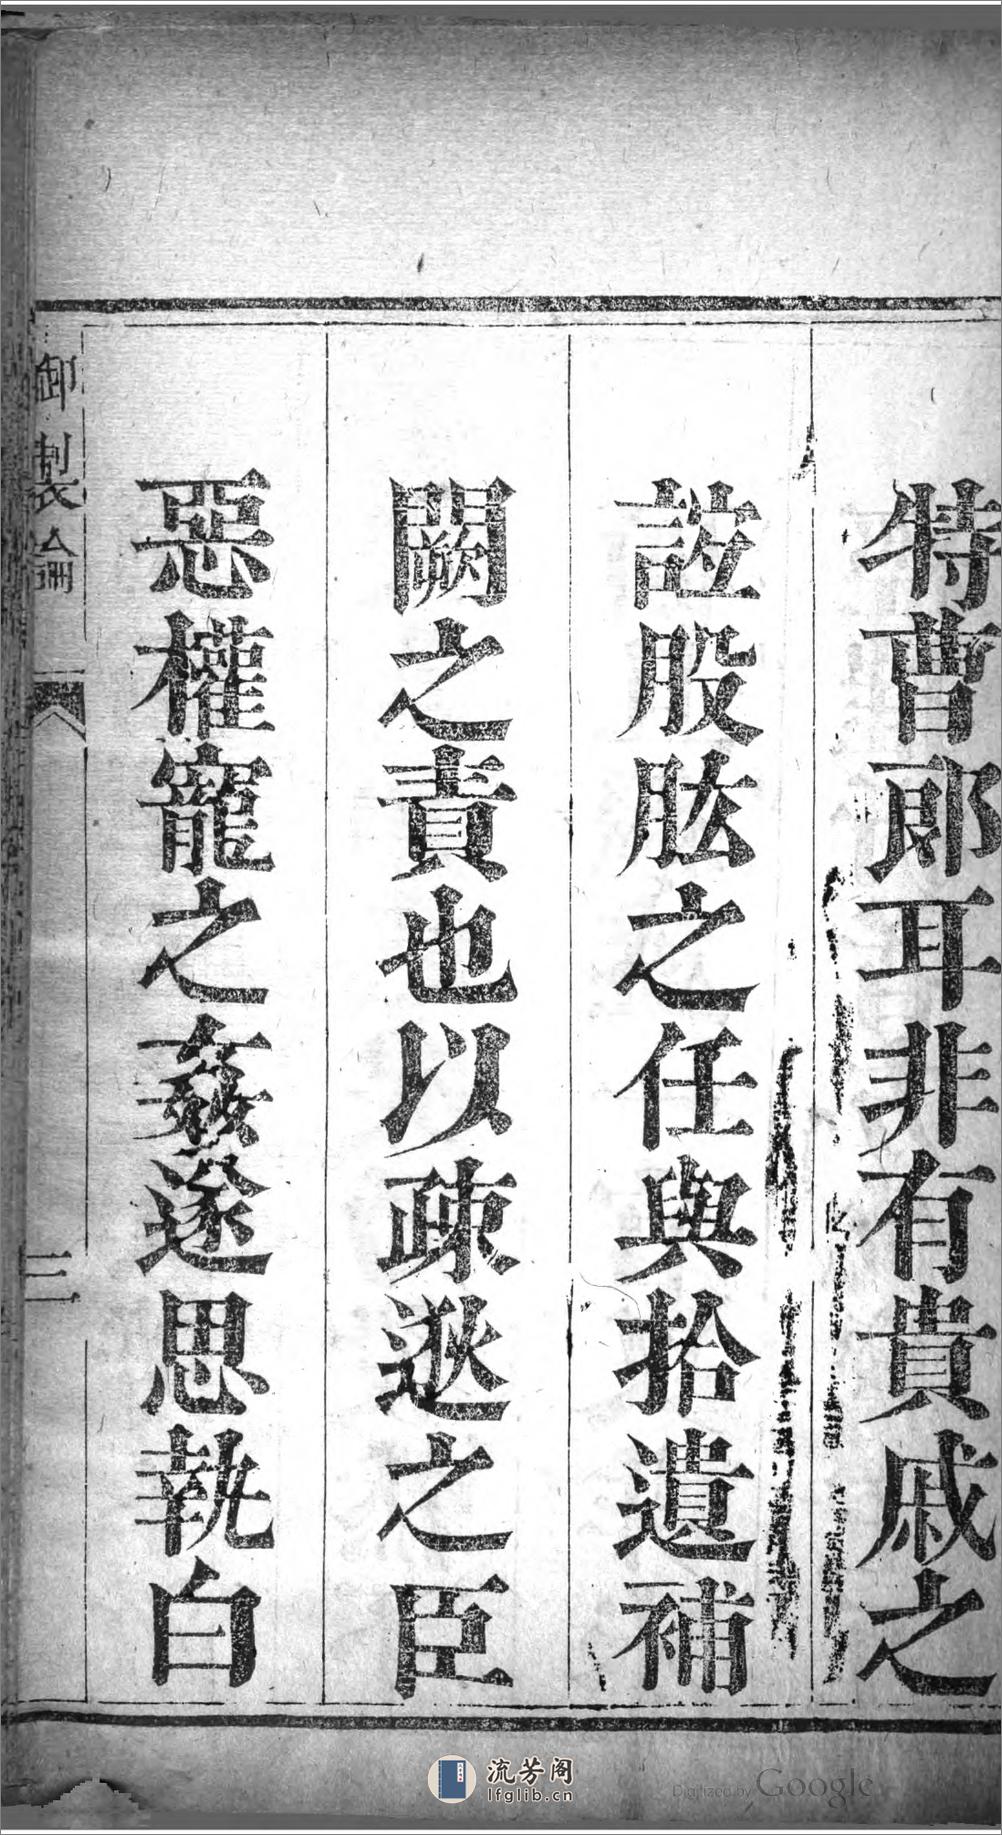 特曹郎耳非有貴戚之
誼股肱之任與拾遺補
闕之責也以疎逖之臣
惡權寵之姦遂思執白
御製論
三
流芳阁
lfglib.cn
Digitized by Google